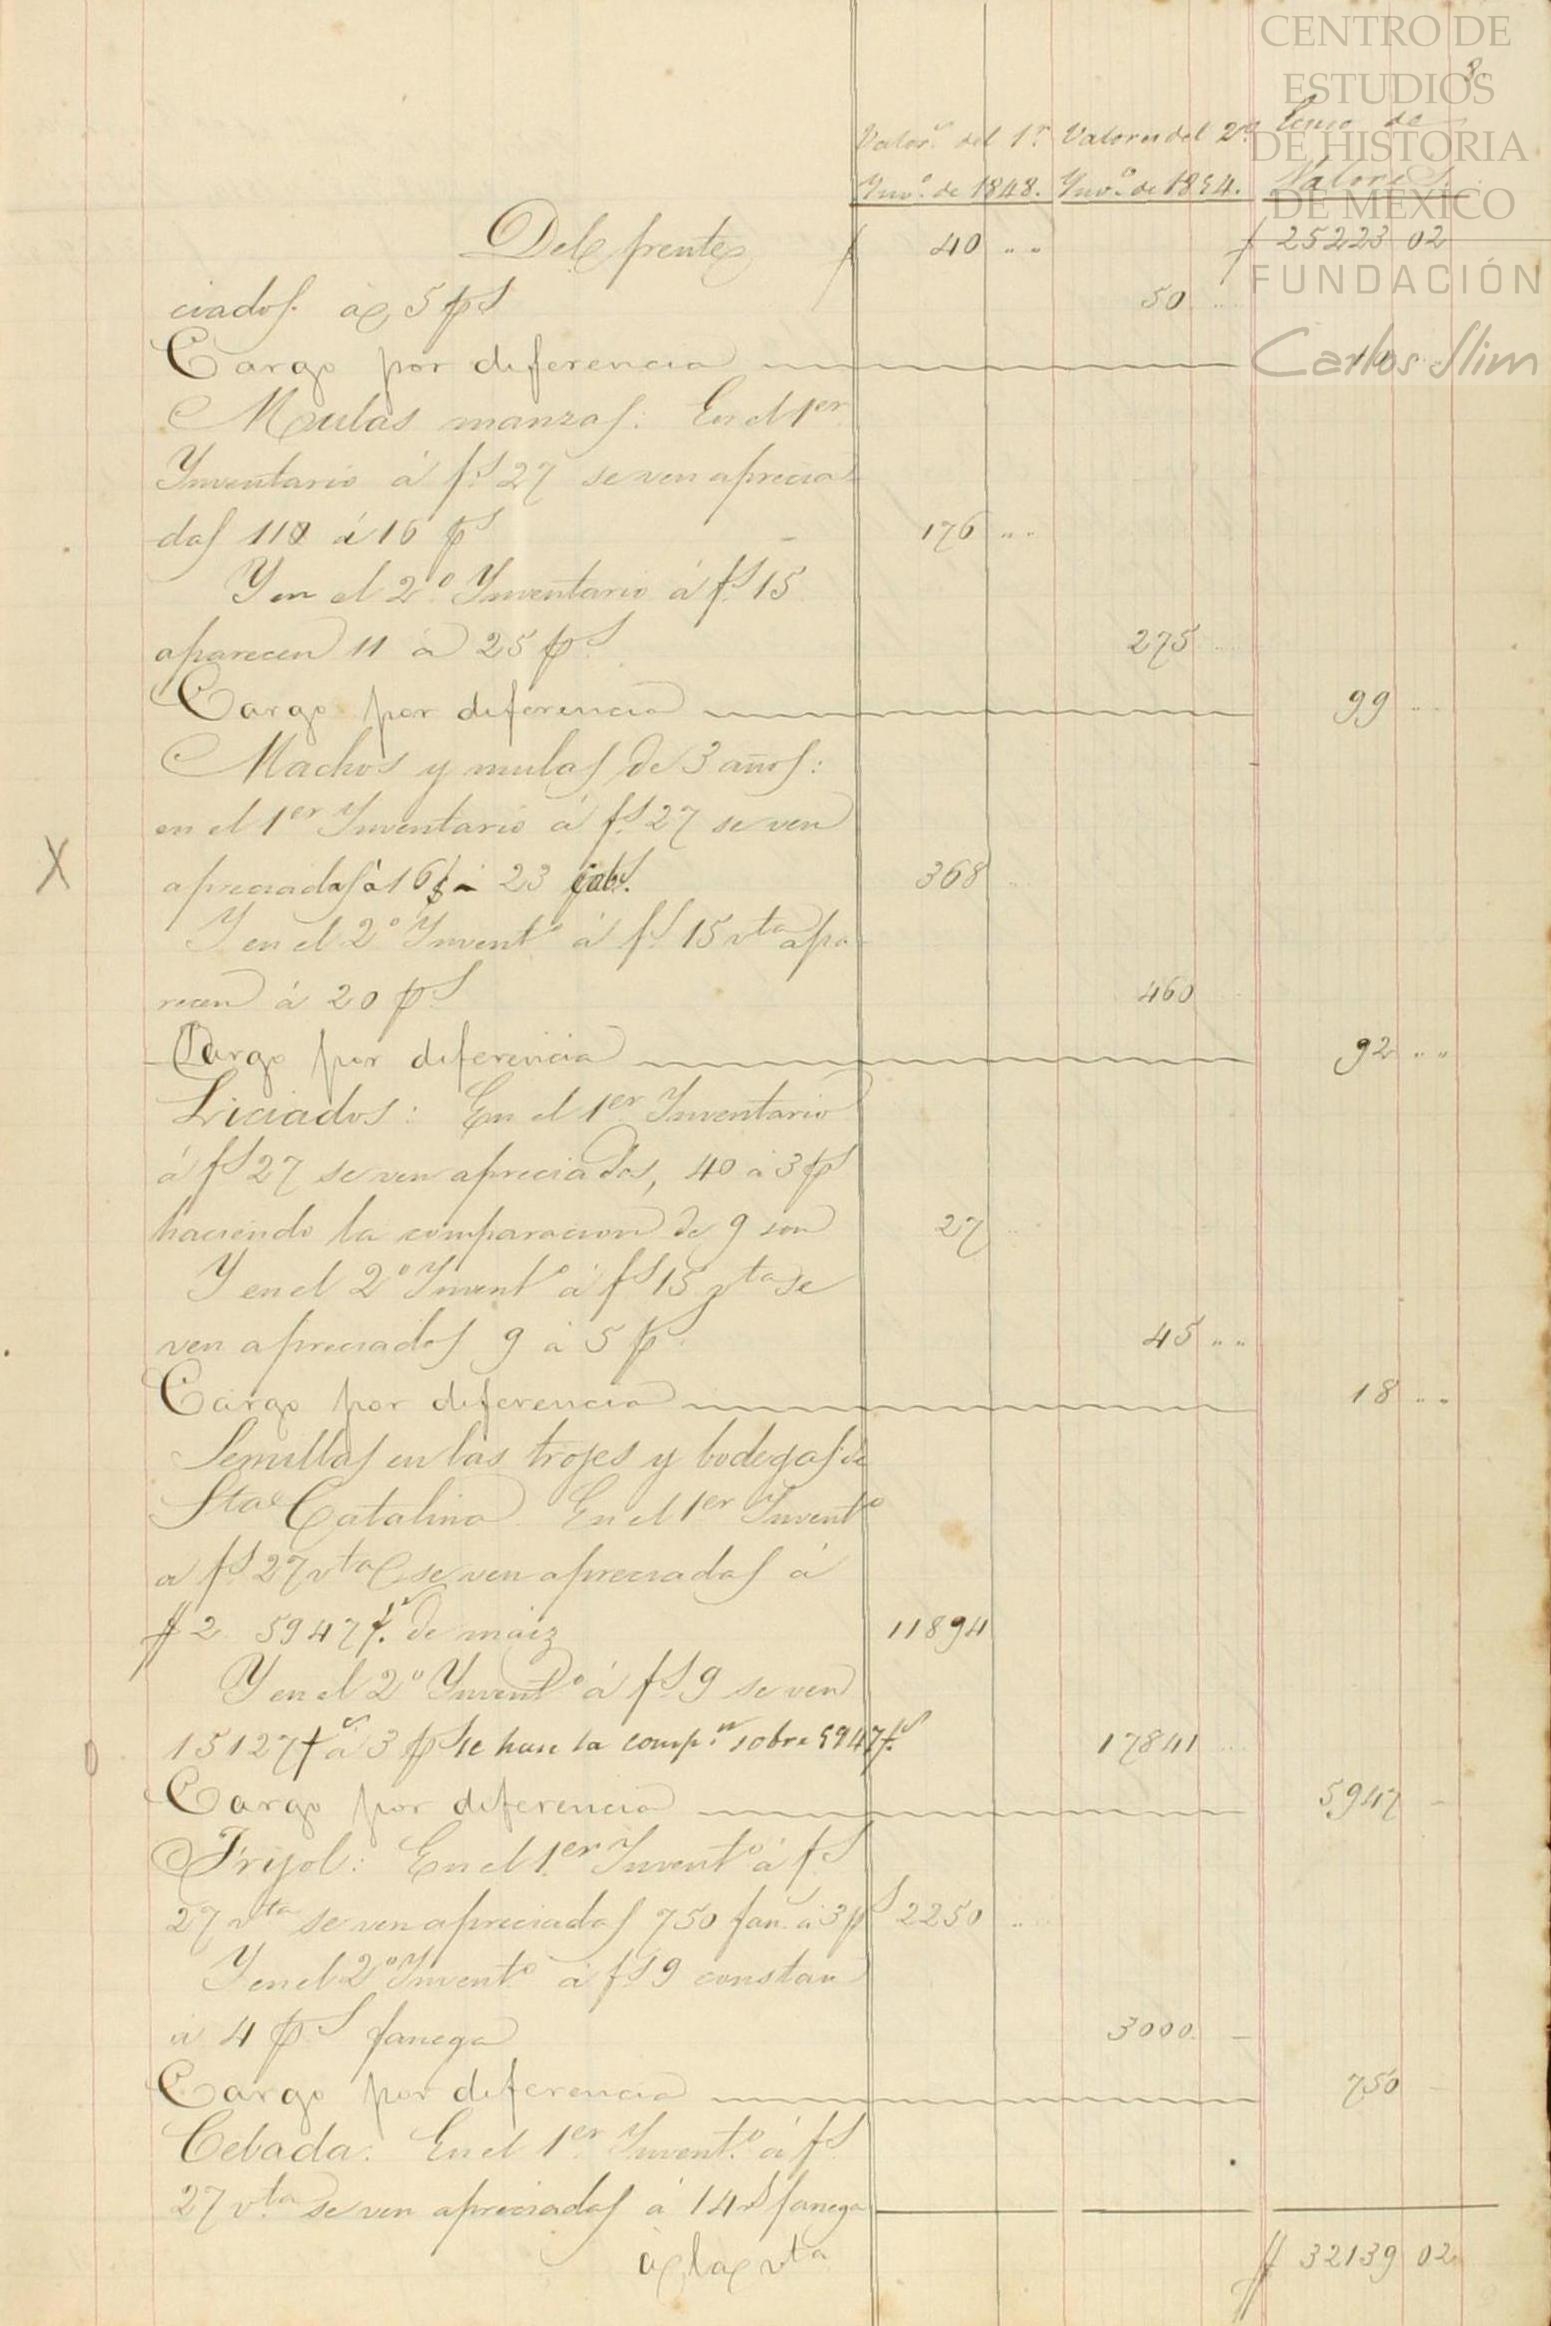 CENTRO DE
ESTUDIOS
DE HISTORIA
DE MÉXICO
FUNDACIÓN
Carlos Slim
8.
Valor.s del 1.r Valores del 2.o de
Inv.o de 1848. Inv.o de 1854. Valores.
Del frente $ 40 " " $ 25223 02
ciados. á 5 p.s 50 ..
Cargo por diferencia 10
Mulas manzas: En el 1er
Inventario á f.s 27 se ven aprecia-
das 11 á 16 p.s 176 " "
Y en el 2.o Inventario á f.s 15
aparecen 11 á 25 p.s 275 ....
Cargo por diferencia 99 " "
Machos y mulas de 3 años:
en el 1er Inventario á f.s 27 se ven
X apreciadas á 16 $ - 23 cab.s 368 ..
Y en el 2.o Invent.o á f.s 15 vta apa-
recen á 20 p.s 460
Cargo por diferencia 92 " "
Liciados: En el 1er Inventario
á f.s 27 se ven apreciados, 40 á 3 p.s
haciendo la comparacion de 9 son 27 ..
Y en el 2.o Invent.o á f.s 15 vta se
ven apreciados 9 á 5 p.s 45 " "
Cargo por diferencia 18 " "
Semillas en las trojes y bodegas de
Sta Catalina En el 1er Invent.o
a f.s 27 vta se ven apreciadas á
$ 2 5947 f.s de maiz 11894
Y en el 2.o Invent.o á f.s 9 se ven
0 15127 f.s á 3 p.s se hase la comp.n sobre 5947 f.s 17841 ....
Cargo por diferencia 5947 -
Frijol: En el 1er Invent.o á f.s
27 vta se ven apreciadas 750 fan.s á 3 p.s 2250 ..
Y en el 2.o Invent.o á f.s 9 constan
á 4 p.s fanega 3000. -
Cargo por diferencia 750 -
Cebada: En el 1er Invent.o á f.s
27 vta se ven apreciadas á 14 r.s fanega
á la vta $ 32139 02